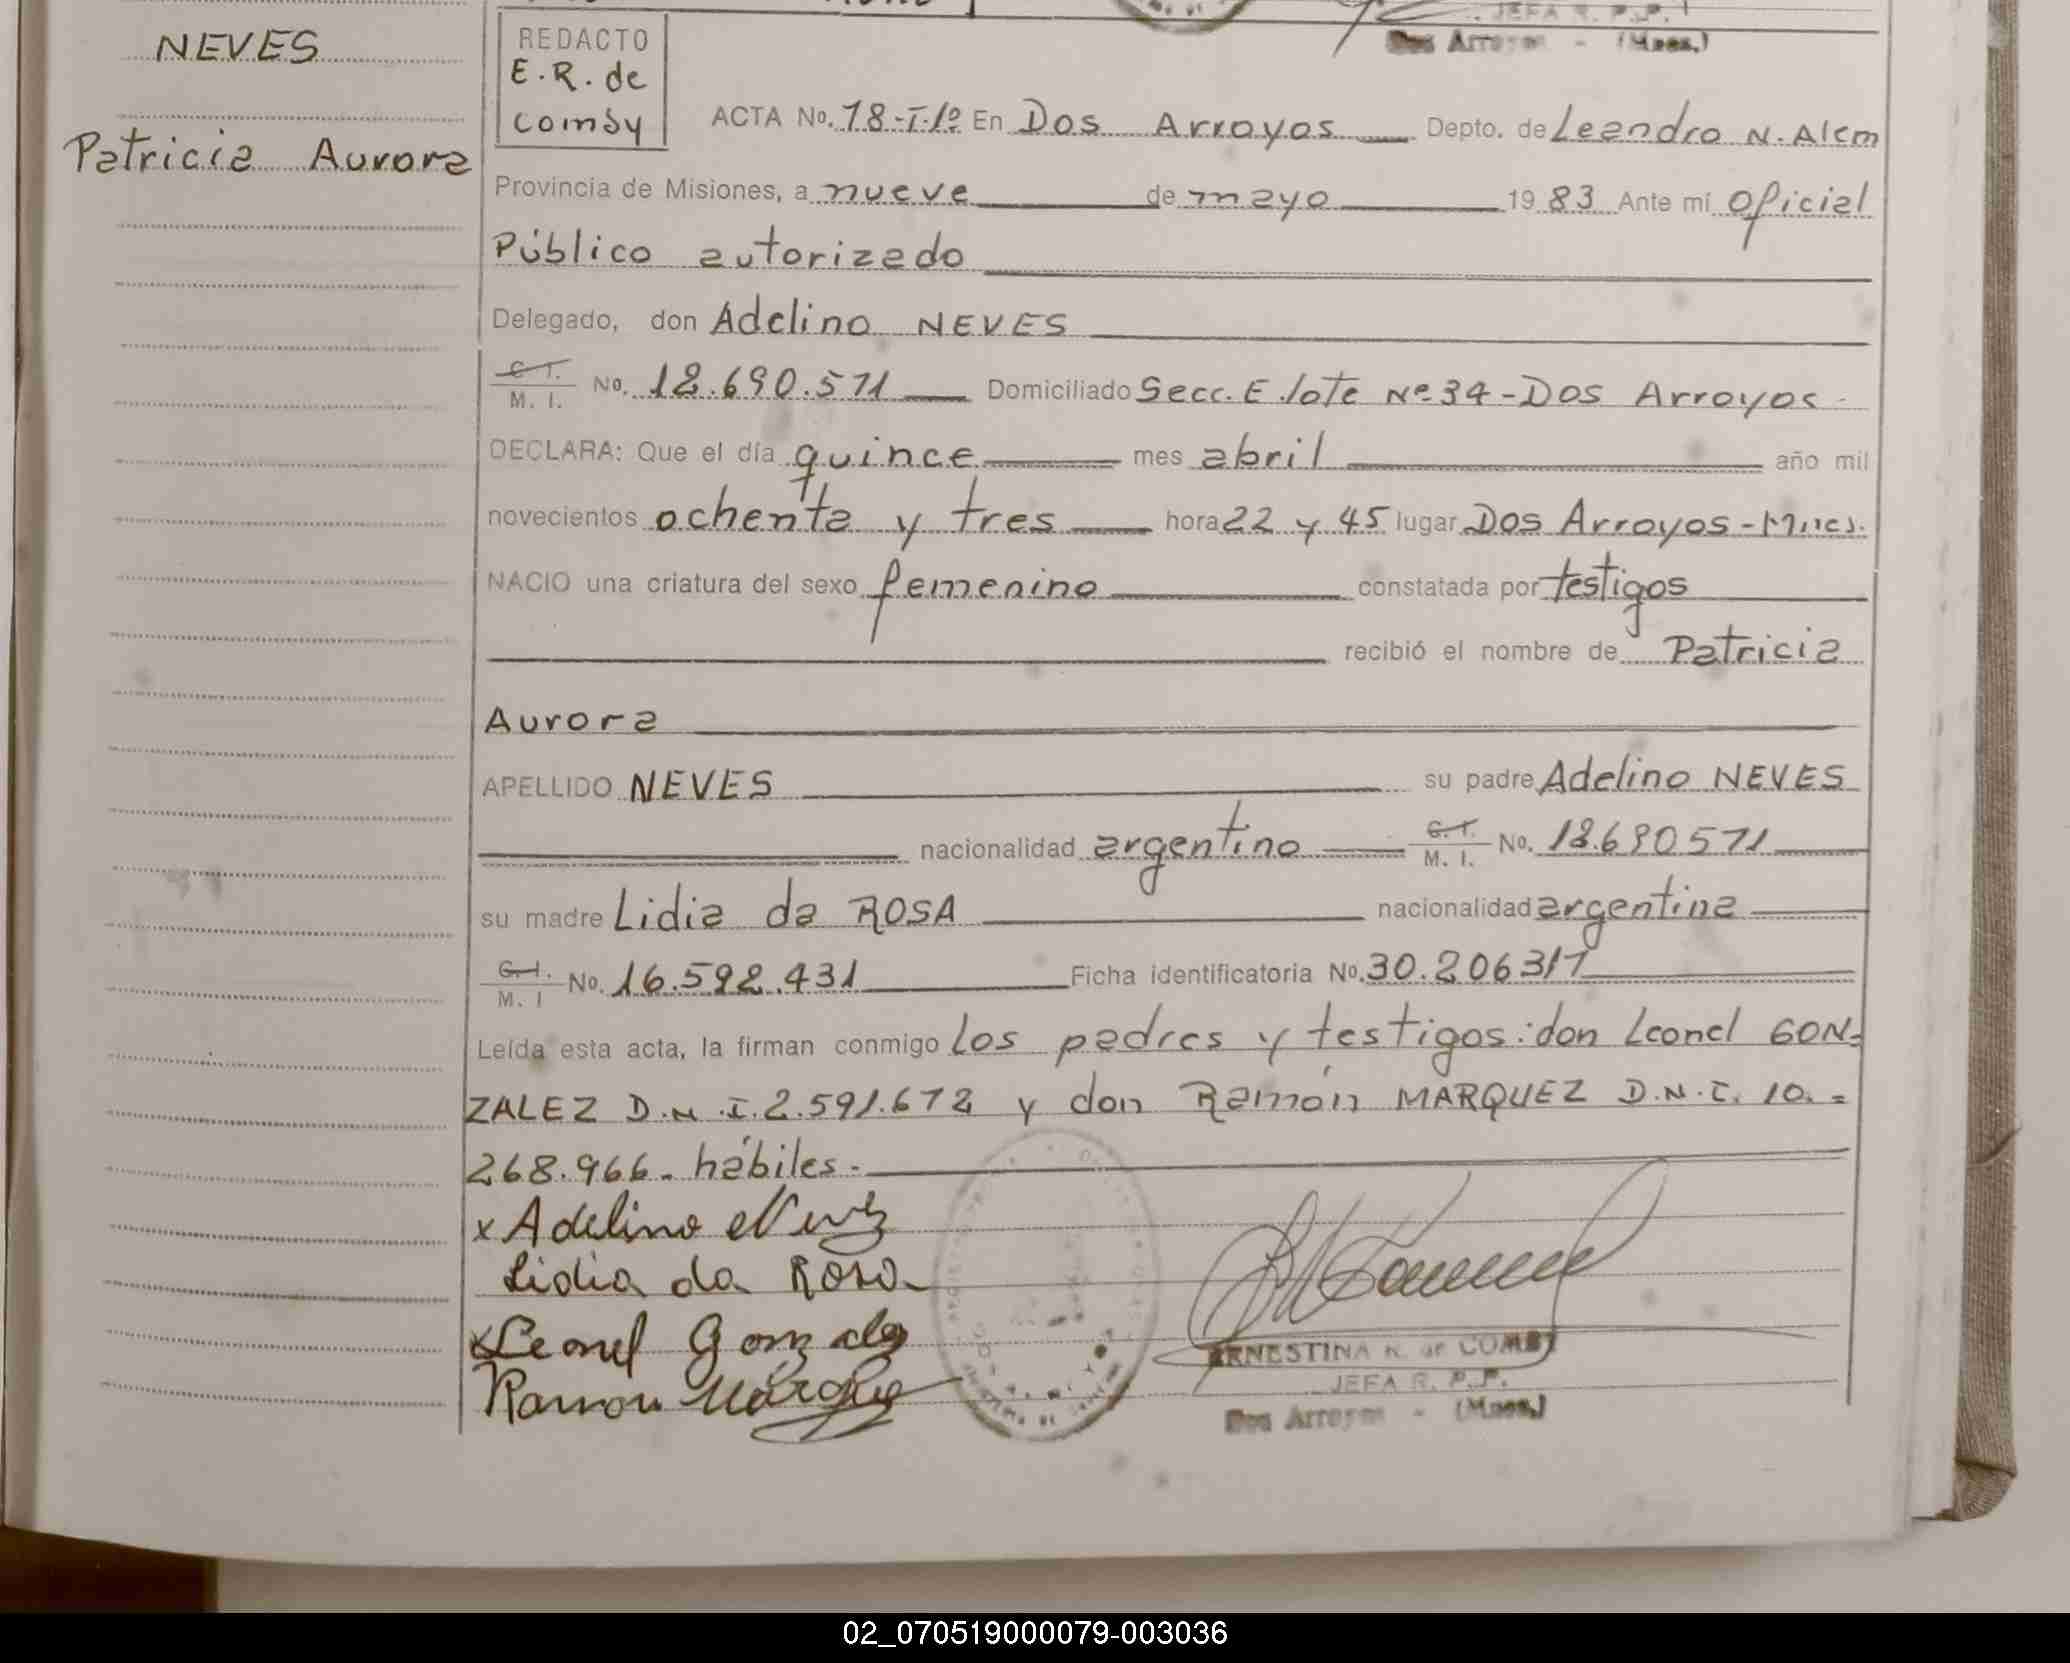 JEFA R. P. P.
Dos Arroyos - (Mnes.)
NEVES
Patricia Aurora
REDACTO
E.R. de
Comby
ACTA No. 18-T-1º En Dos Arroyos Depto. de Leandro N. Alem
Provincia de Misiones, a nueve de mayo 1983 Ante mí oficial
Público autorizado
Delegado, don Adelino NEVES
C. I. M. I. No. 18.690.571 Domiciliado Secc. E lote Nº 34 - Dos Arroyos -
DECLARA: Que el día quince mes abril año mil
novecientos ochenta y tres hora 22 y 45 lugar Dos Arroyos - Mnes.
NACIO una criatura del sexo femenino constatada por testigos
recibió el nombre de Patricia
Aurora
APELLIDO NEVES su padre Adelino NEVES
nacionalidad argentino C. I. M. I. No. 18.690571
su madre Lidia da ROSA nacionalidad argentina
C. I. M. I No. 16.592.431 Ficha identificatoria No. 30.206317
Leída esta acta, la firman conmigo los padres y testigos: don Leonel GON=
ZALEZ D.N.I. 2.591.672 y don Ramón MARQUEZ D.N.I. 10. =
268.966 - hábiles.-
x Adelino Neves
Lidia da Rosa
x Leonel Gonzalez
Ramon Márquez
ERNESTINA R. de COMBY
JEFA R. P. P.
Dos Arroyos - (Mnes.)
02_070519000079-003036